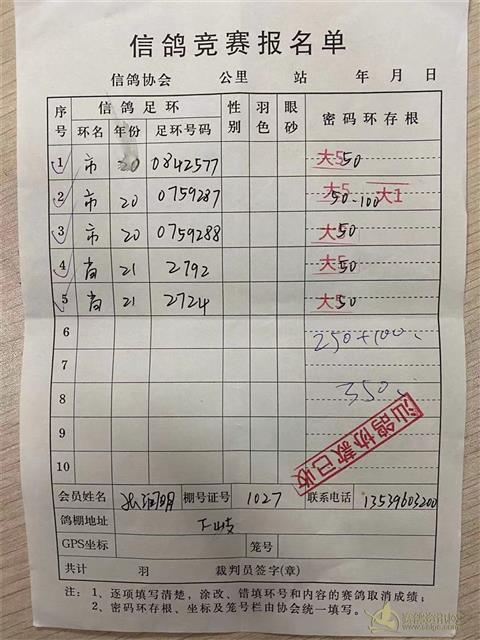 信鸽竞赛报名单
信鸽协会 公里 站 年 月 日
序号 信鸽足环 性别 羽色 眼砂 密码环存根
环名 年份 足环号码
1 市 20 0842577 大5 50
2 市 20 0759287 大5 50-100 大1
3 市 20 0759288 大5 50
4 省 21 2792 大5 50
5 省 21 2724 大5 50
6 250+100
7
8 350
9
10
汕鸽协款已收
会员姓名 棚号证号 1027 联系电话 13539603200
鸽棚地址 下岐
GPS坐标 笼号
共计 羽 裁判员签字(章)
注：1、逐项填写清楚，涂改、错填环号和内容的赛鸽取消成绩；
2、密码环存根、坐标及笼号栏由协会统一填写。